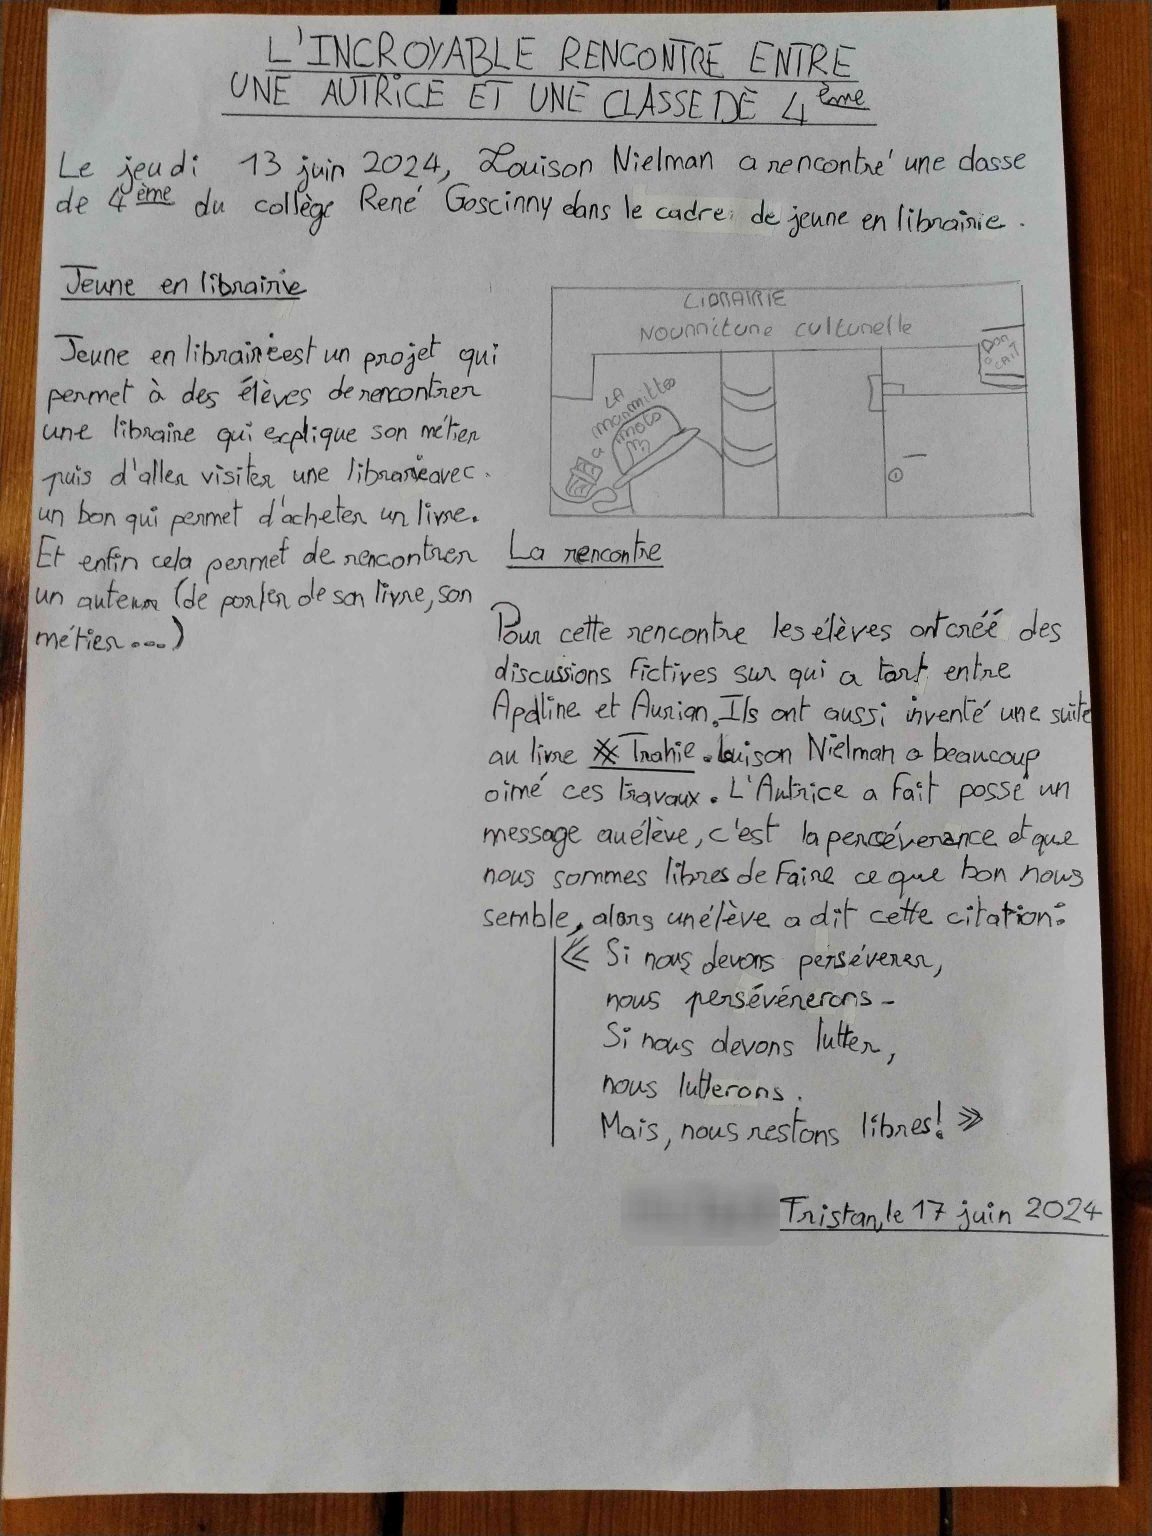 L'INCROYABLE RENCONTRE ENTRE
UNE AUTRICE ET UNE CLASSE DE 4ème
Le jeudi 13 juin 2024, Louison Nielman a rencontré une classe
de 4ème du collège René Goscinny dans le cadre de jeune en librairie.
Jeune en librairie
Jeune en librairie est un projet qui
permet à des élèves de rencontrer
une libraire qui explique son métier
puis d'aller visiter une librairie avec
un bon qui permet d'acheter un livre.
Et enfin cela permet de rencontrer
un auteur (de parler de son livre, son
métier...)
LIBRAIRIE
Nourriture culturelle
LA
marmitte
moto
La rencontre
Pour cette rencontre les élèves ont créé des
discussions fictives sur qui a tort entre
Apolline et Aurian. Ils ont aussi inventé une suite
au livre Trahie. Louison Nielman a beaucoup
aimé ces travaux. L'Autrice a fait passé un
message au élève, c'est la percéverance et que
nous sommes libres de faire ce que bon nous
semble, alors un élève a dit cette citation:
« Si nous devons persévérer,
nous persévérerons-
Si nous devons lutter,
nous lutterons.
Mais, nous restons libres! »
Tristan, le 17 juin 2024